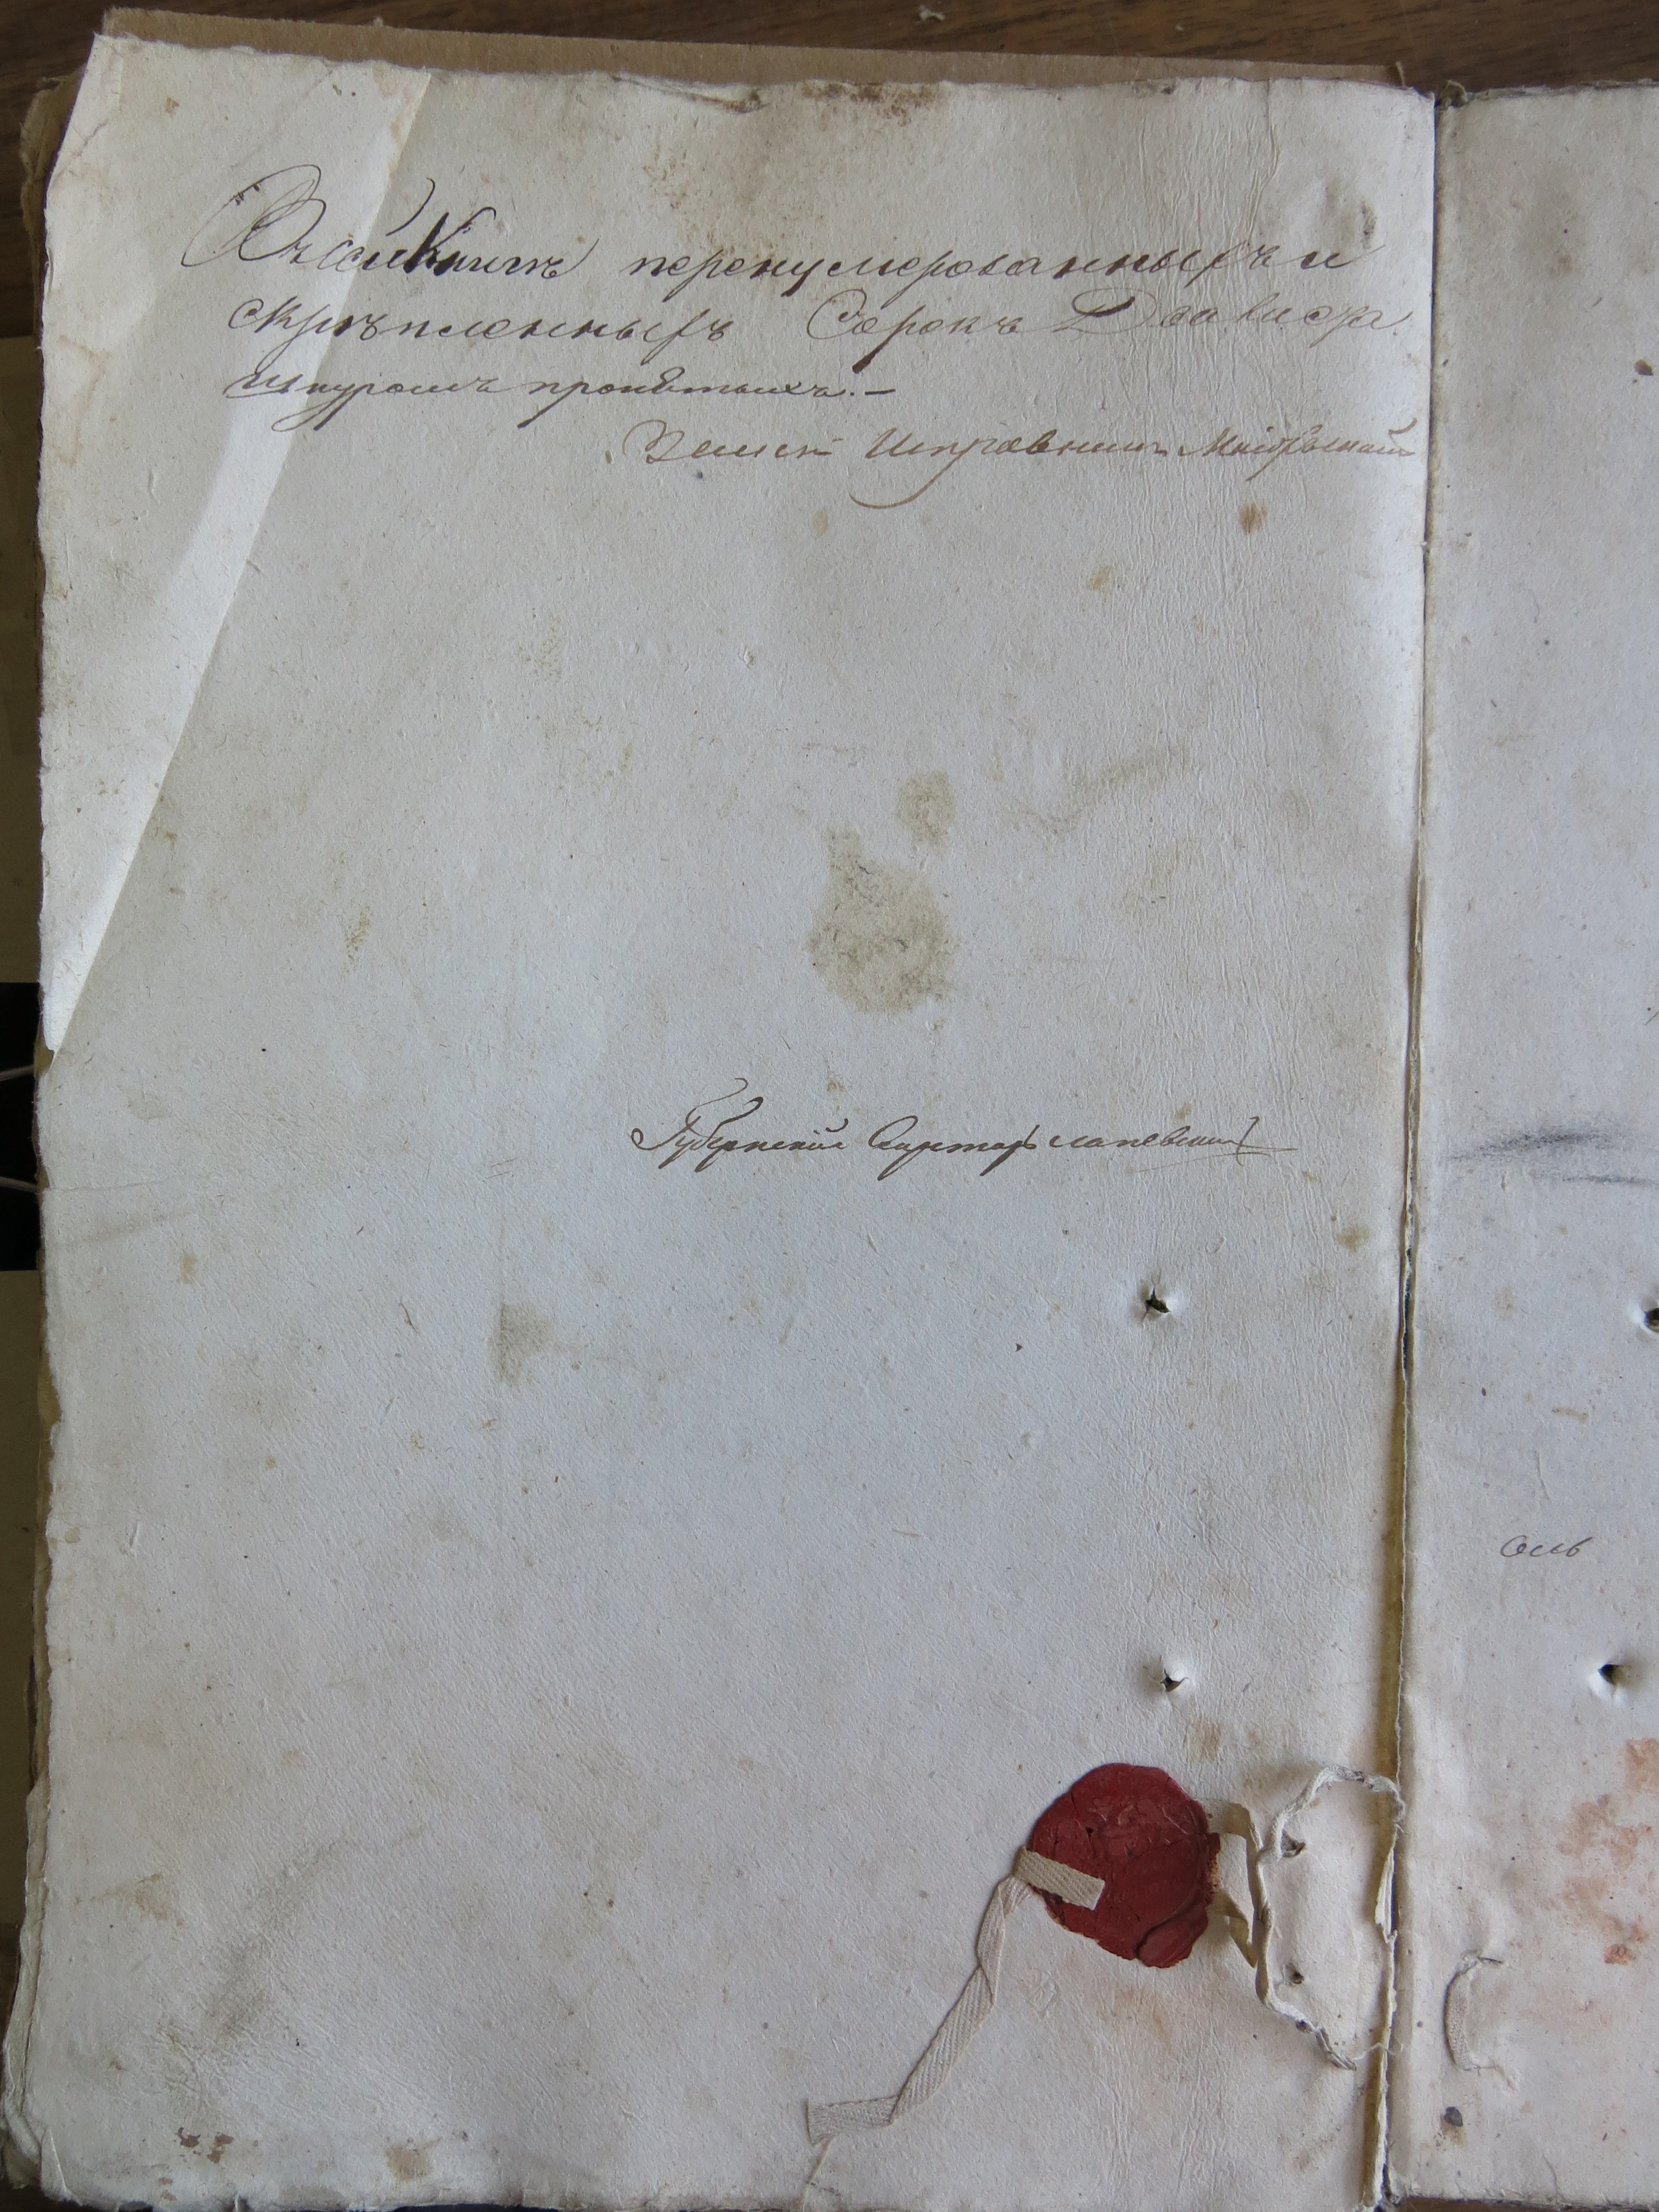 Въ сей Книгѣ перенумерованныхъ и
скрѣпленныхъ Сорокъ Два листа
шнуромъ пронятыхъ.-
Земск Исправникъ
Губернский Секретарь
Осмь